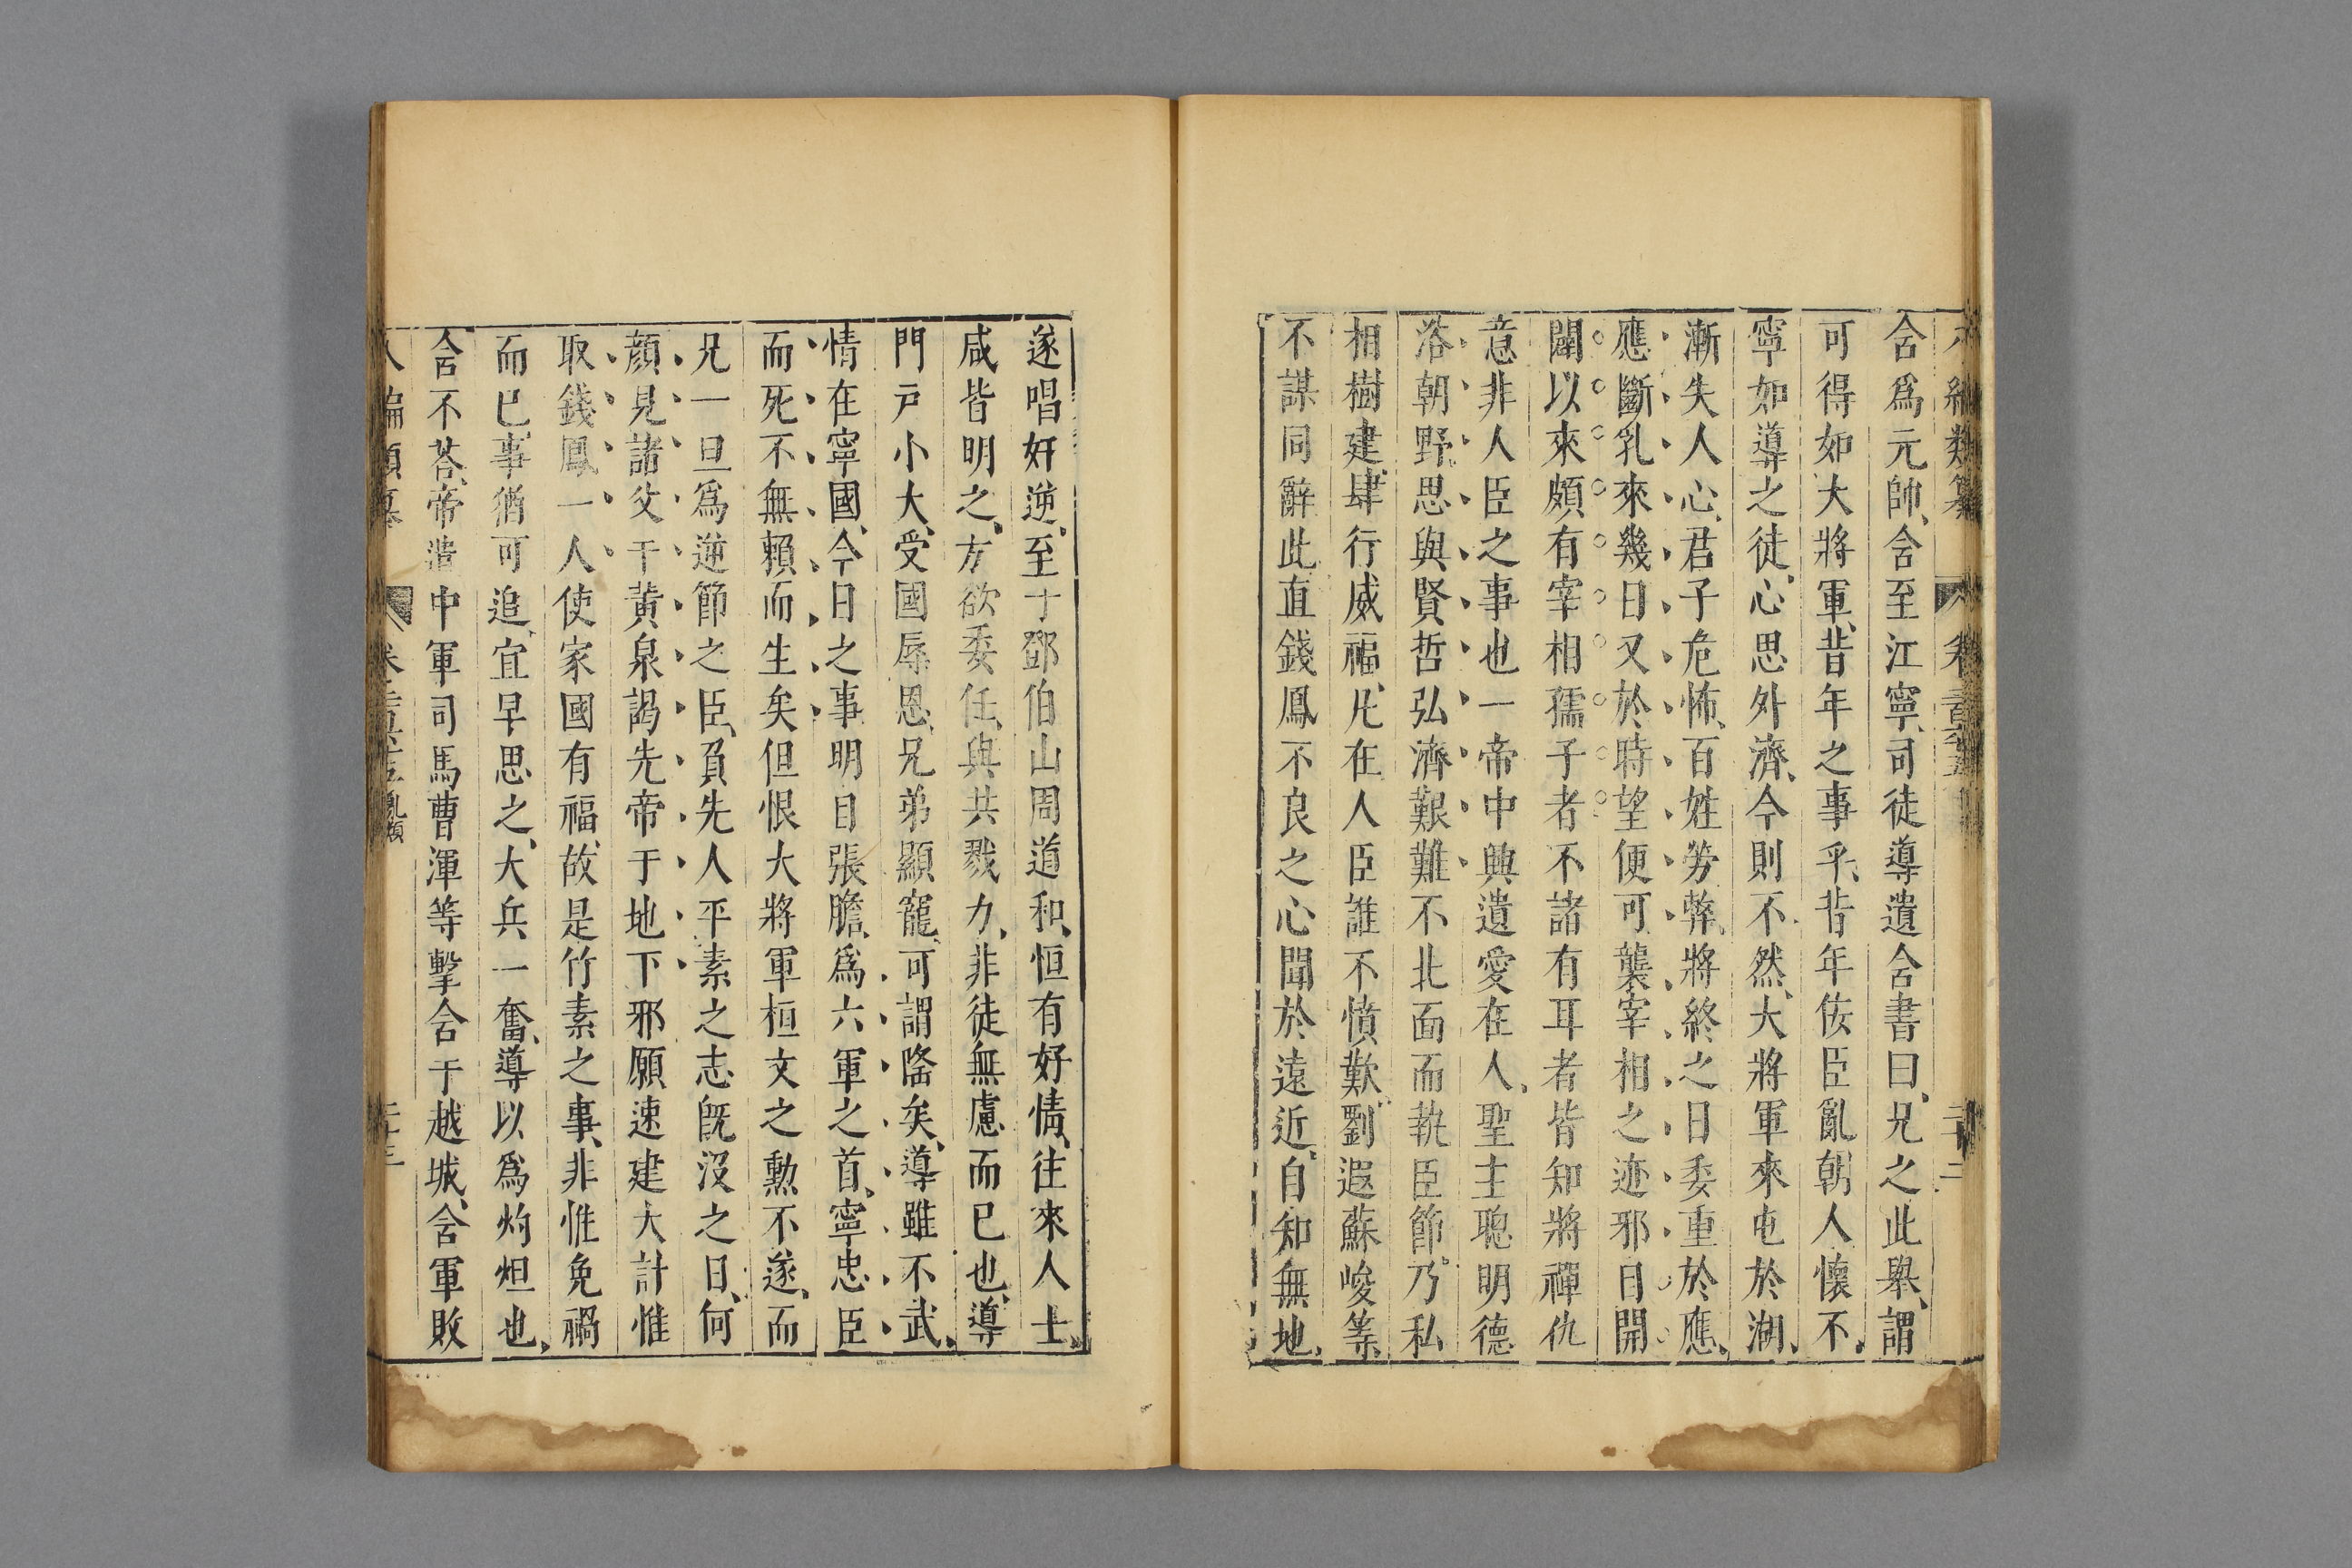 八編類纂 卷二百六十五 二十二
含爲元帥含至江寧司徒導遺含書曰兄之此舉謂
可得如大將軍昔年之事乎昔年佞臣亂朝人懷不
寧如導之徒心思外濟今則不然大將軍來屯於湖
漸失人心君子危怖百姓勞弊將終之日委重於應
應斷乳來幾日又於時望便可襲宰相之迹邪自開
闢以來頗有宰相孺子者不諸有耳者皆知將禪代
意非人臣之事也一帝中興遺愛在人聖主聰明德
洽朝野思與賢哲弘濟艱難不北面而執臣節乃私
相樹建肆行威福凡在人臣誰不憤歎劉遐蘇峻等
不謀同辭此直錢鳳不良之心聞於遠近自知無地
遂唱奸逆至于鄧伯山周道和恒有好情往來人士
咸皆明之方欲委任與共戮力非徒無慮而已也導
門戸小大受國厚恩兄弟顯寵可謂隆矣導雖不武
情在寧國今日之事明目張膽爲六軍之首寧忠臣
而死不無賴而生矣但恨大將軍桓文之勲不遂而
兄一旦爲逆節之臣負先人平素之志旣沒之日何
顔見諸父于黄泉謁先帝于地下邪願速建大計惟
取錢鳳一人使家國有福故是竹素之事非惟免禍
而已事猶可追宜早思之大兵一奮導以爲灼炟也
含不荅帝潜中軍司馬曹渾等擊含于越城含軍敗
二十三